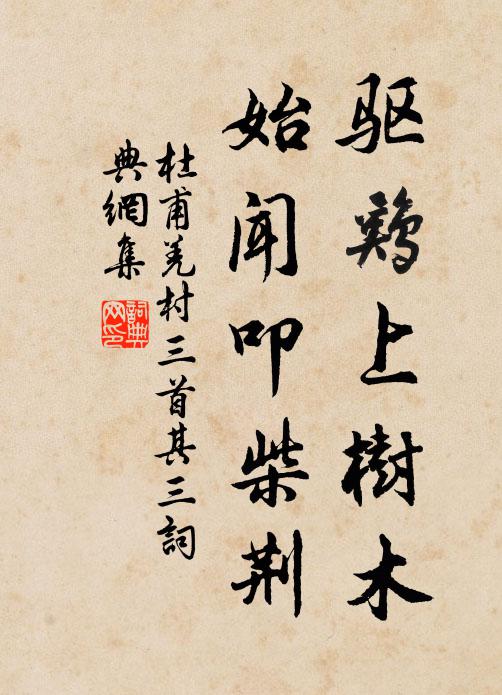 驱鷄上樹木
始闻叩柴荆
杜甫羌村三首其三詞
典網集
詞典網印